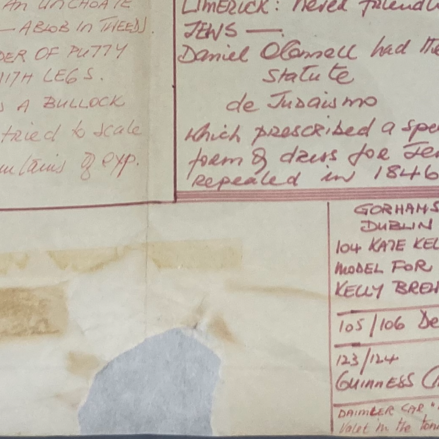 AN INCHOATE
— A BLOB IN
OF PUTTY
WITH LEGS.
A BULLOCK
tried to scale
of exp.
LIMERICK:
JEWS —.
Daniel O'Connell had the
statute
de Judaismo
which prescribed a
form of dress for
repealed in 1846
GORHAMS
DUBLIN
104 KATE
MODEL FOR
KELLY
105/106
123/124
GUINNESS
DAIMLER CAR,
Valet in the